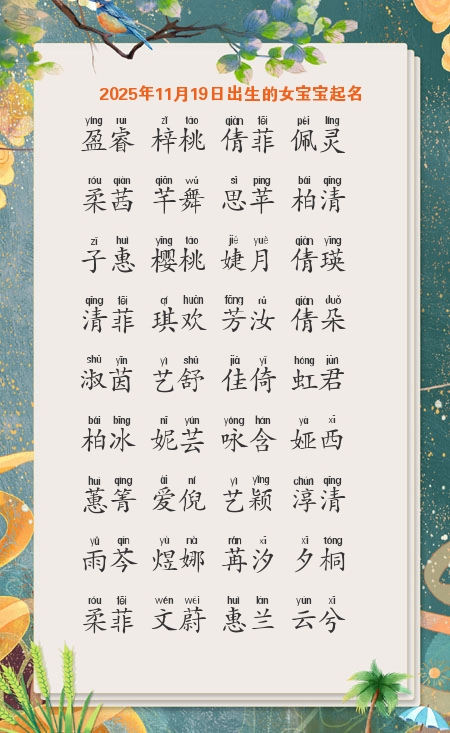 2025年11月19日出生的女宝宝起名
yíng ruì zǐ táo qiàn fēi pèi líng
盈睿 梓桃 倩菲 佩灵
róu qiàn qiān wǔ sī píng bái qīng
柔茜 芊舞 思苹 柏清
zǐ huì yīng táo jié yuè qiàn yīng
子惠 樱桃 婕月 倩瑛
qīng fēi qí huān fāng rǔ qiàn duǒ
清菲 琪欢 芳汝 倩朵
shū yīn yì shū jiā yǐ hóng jūn
淑茵 艺舒 佳倚 虹君
bái bīng nī yún yǒng hán yà xī
柏冰 妮芸 咏含 娅西
huì qīng ài ní yì yǐng chún qīng
蕙箐 爱倪 艺颖 淳清
yǔ qín yù nà rǎn xī xī tóng
雨芩 煜娜 苒汐 夕桐
róu fēi wén wèi huì lán yún xī
柔菲 文蔚 惠兰 云兮